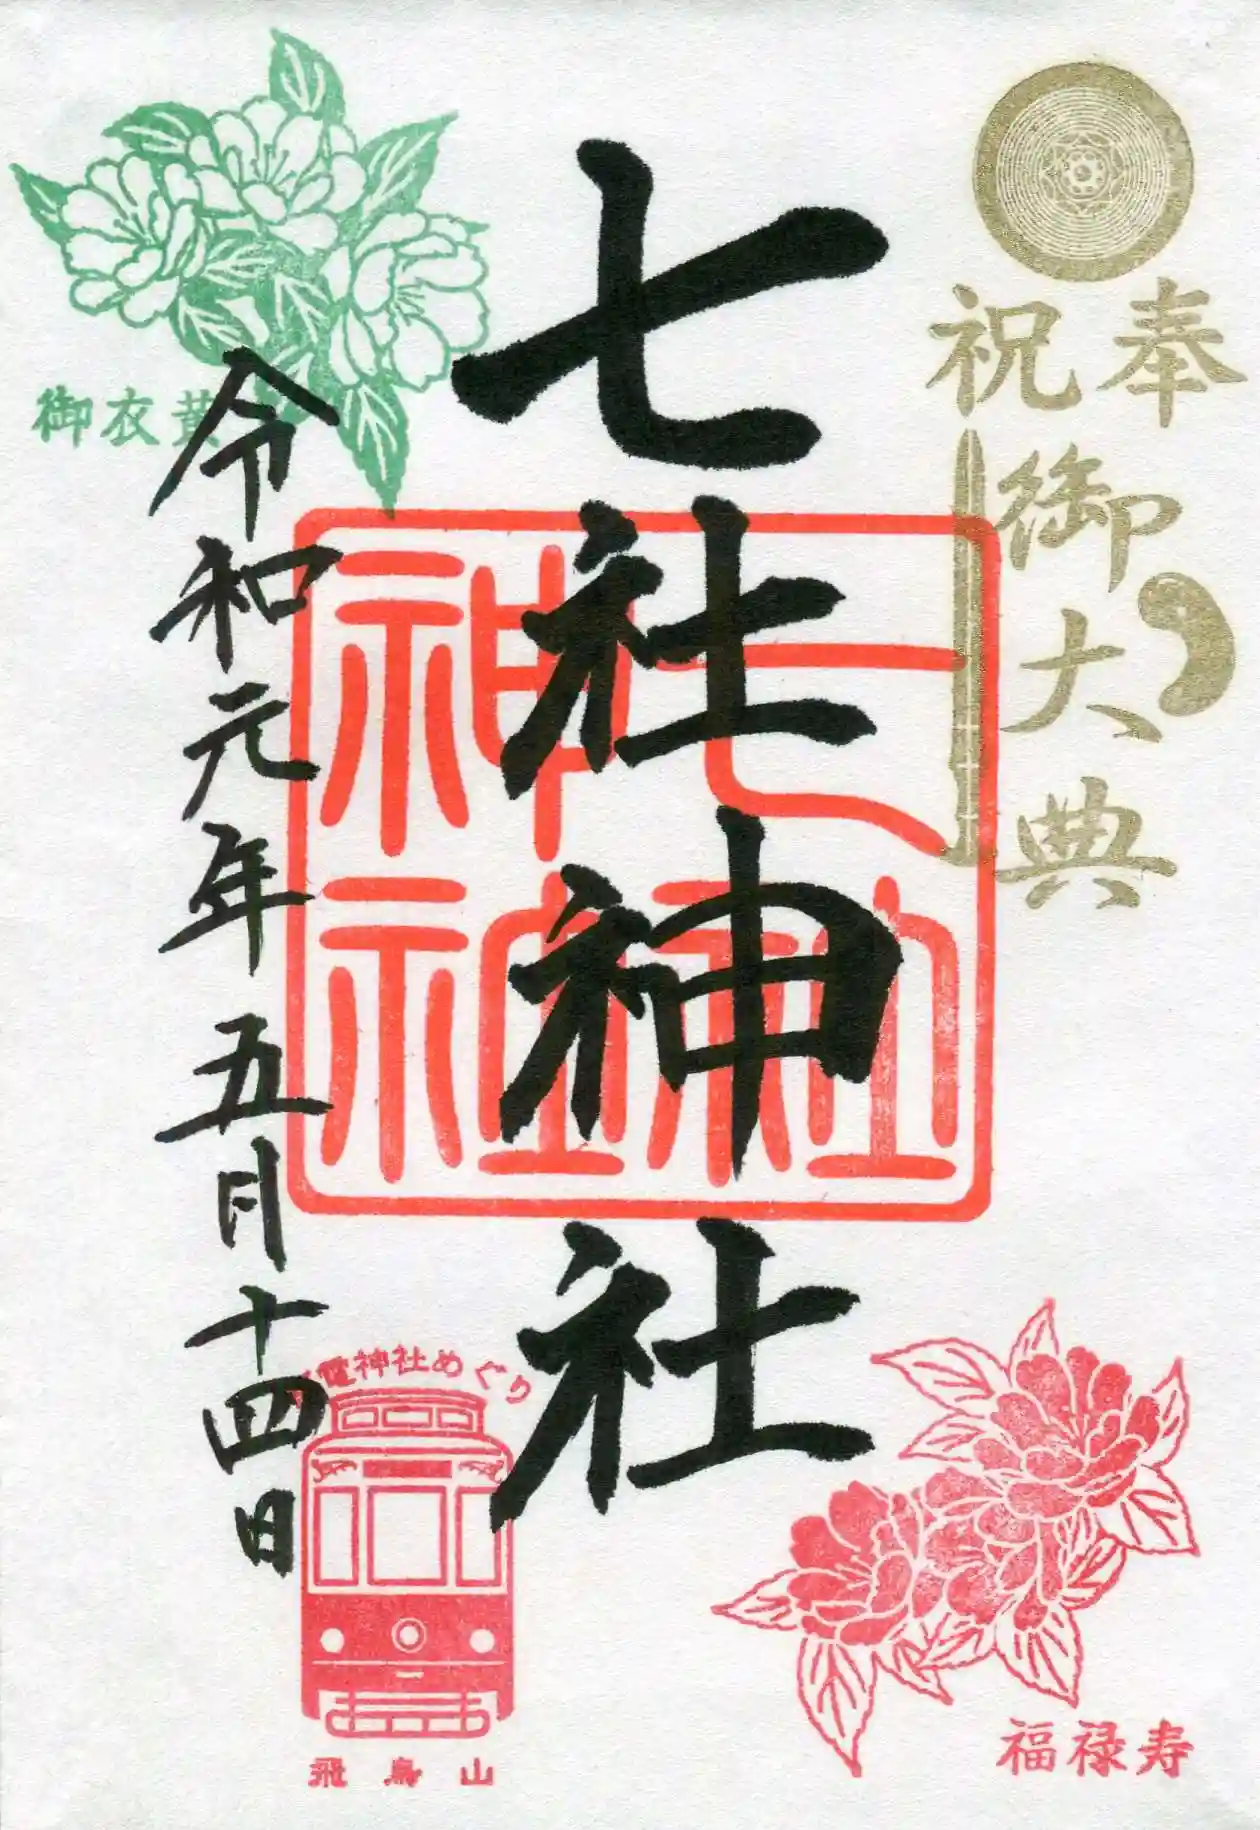 奉祝
御大典
七社神社
七社神社
御衣黄
令和元年五月十四日
電神社めぐり
飛鳥山
福禄寿